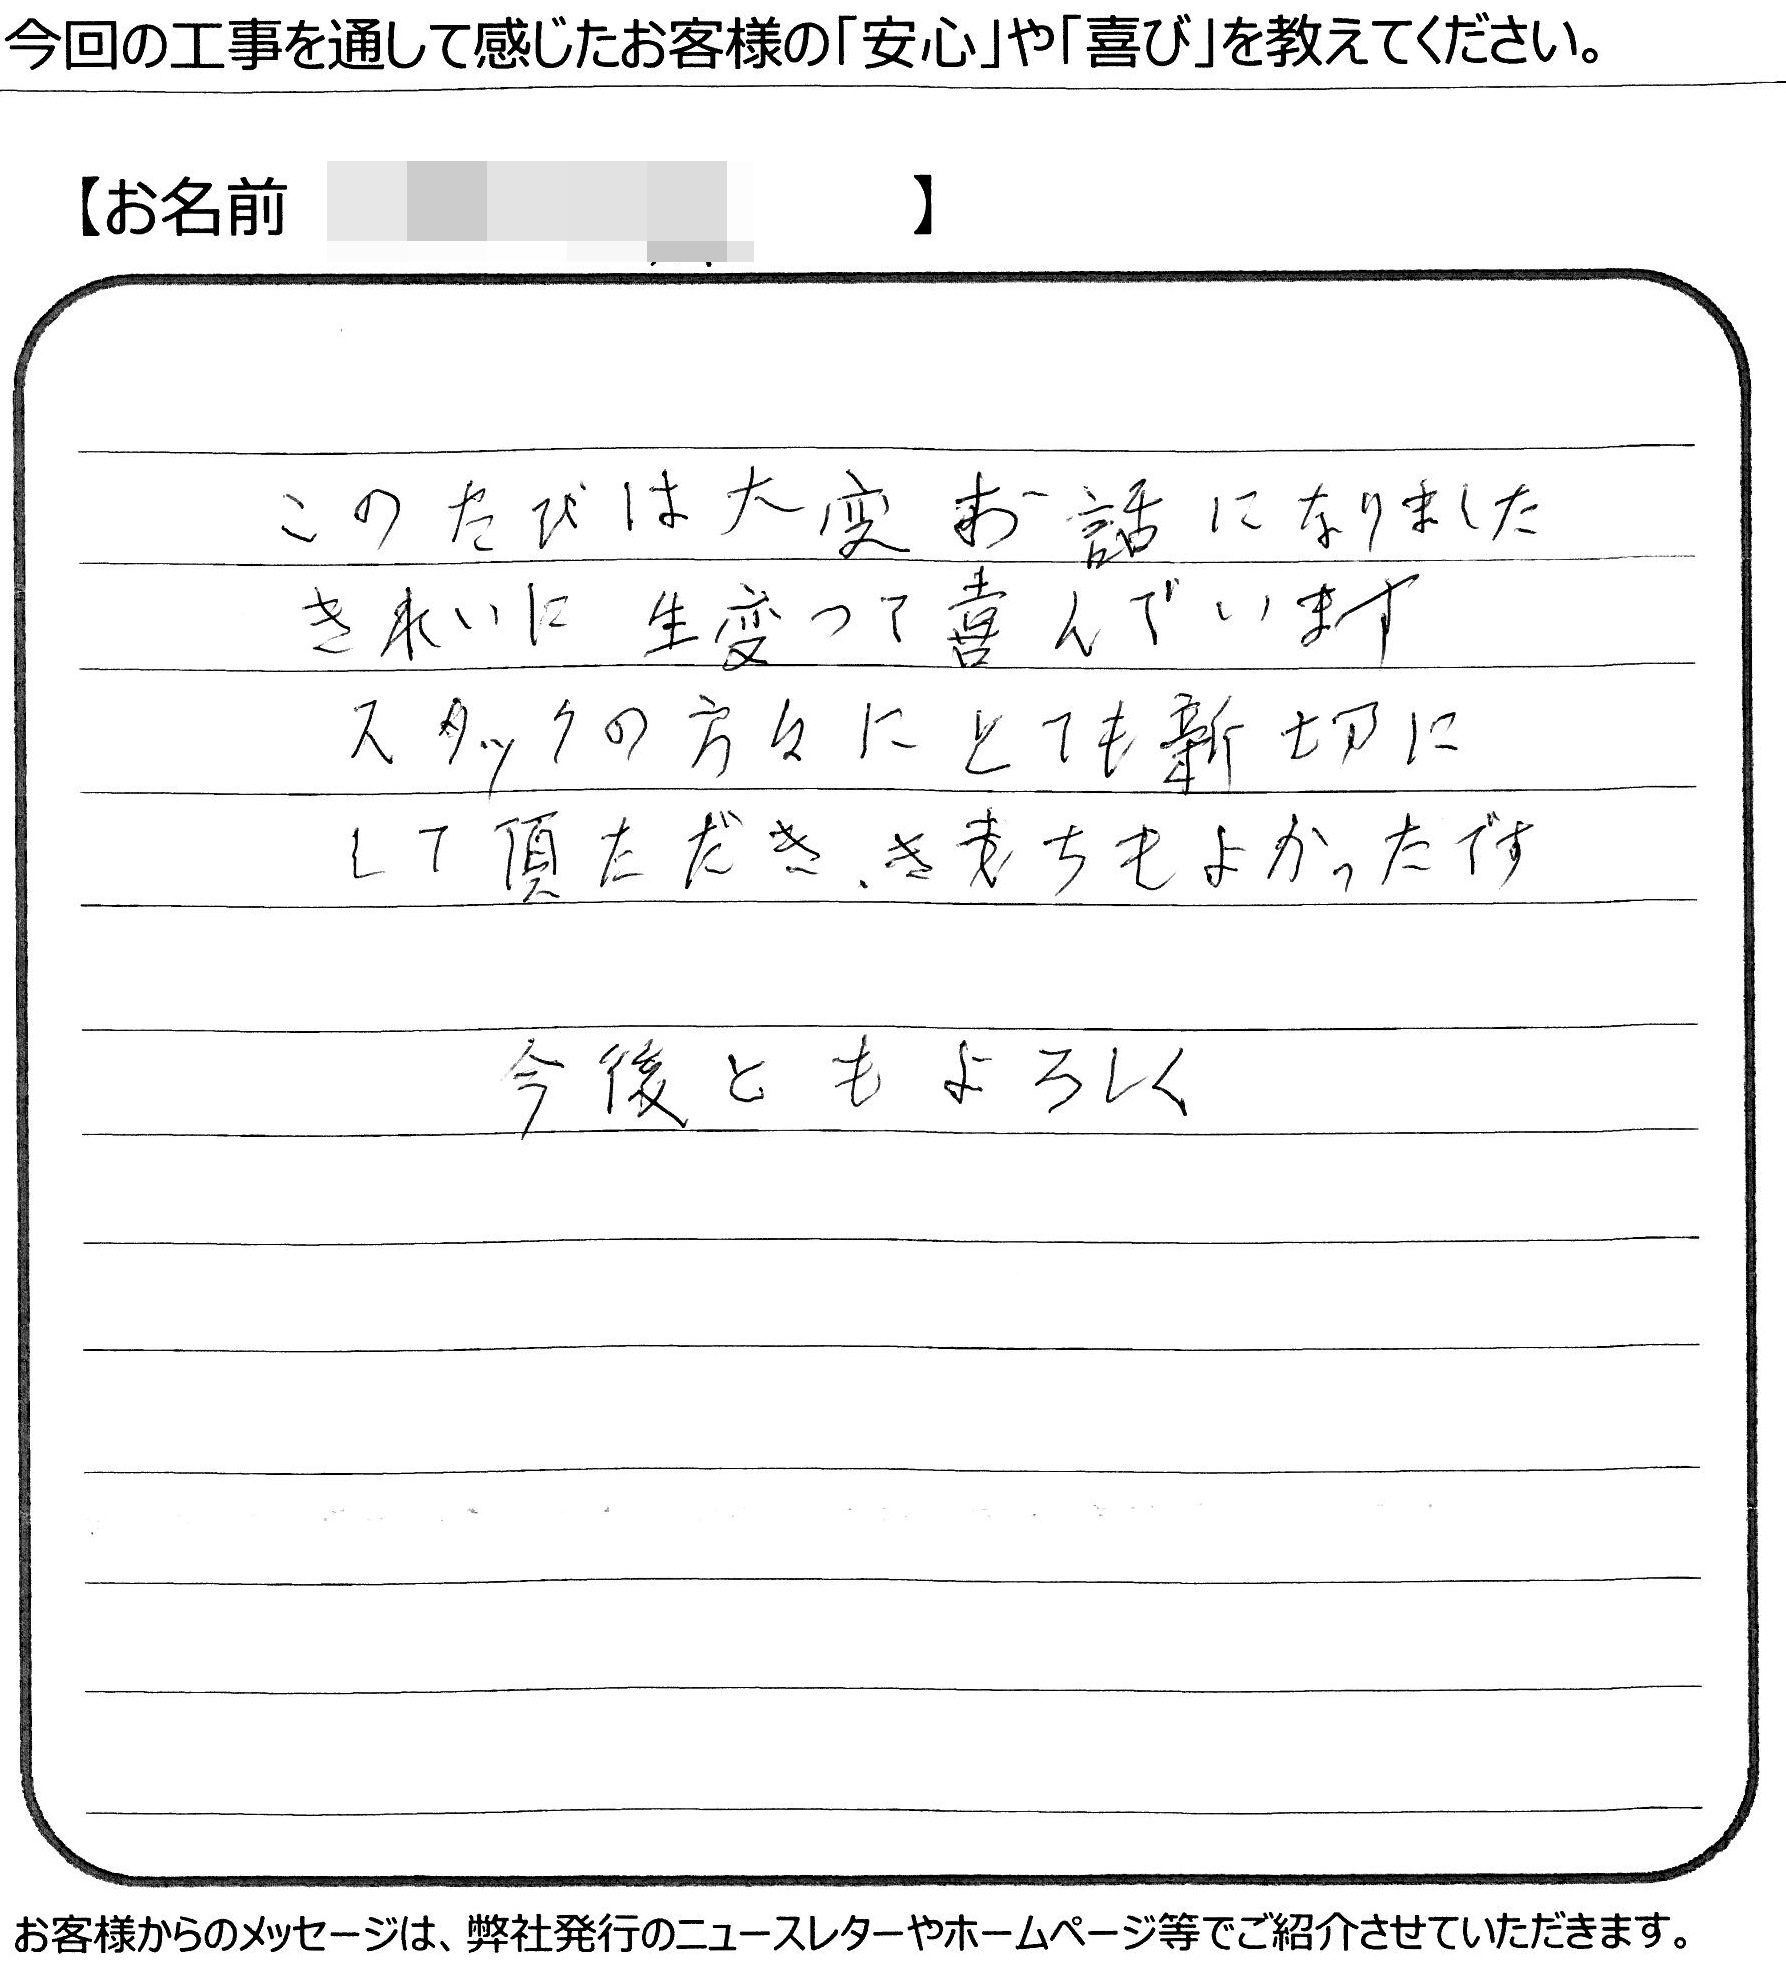 今回の工事を通して感じたお客様の「安心」や「喜び」を教えてください。
【お名前 】
このたびは大変お話になりました
きれいに生変って喜んでいます
スタックの方々にとても新切に
して頂ただき、き持ちもよかったです
今後ともよろしく
お客様からのメッセージは、弊社発行のニュースレターやホームページ等でご紹介させていただきます。